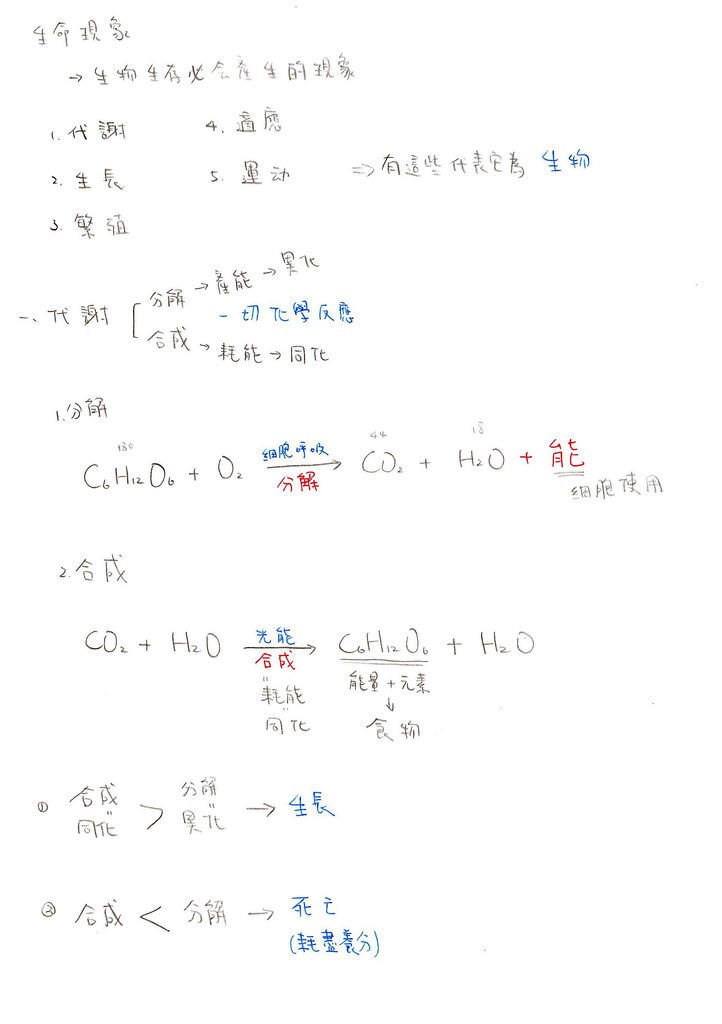 生命現象
→ 生物生存必会產生的現象
1. 代謝 4. 適應
2. 生長 5. 運动 ⇒ 有這些代表它為 生物
3. 繁殖
一、代謝 分解 → 產能 → 異化
一切化學反應
合成 → 耗能 → 同化
1. 分解
180 44 18
C₆H₁₂O₆ + O₂ 細胞呼吸 分解 → CO₂ + H₂O + 能
細胞使用
2. 合成
CO₂ + H₂O 光能 合成 → C₆H₁₂O₆ + H₂O
" 耗能 能量 + 元素
" 同化 ↓ 食物
① 合成 " 同化 > 分解 " 異化 → 生長
② 合成 < 分解 → 死亡
(耗盡養分)